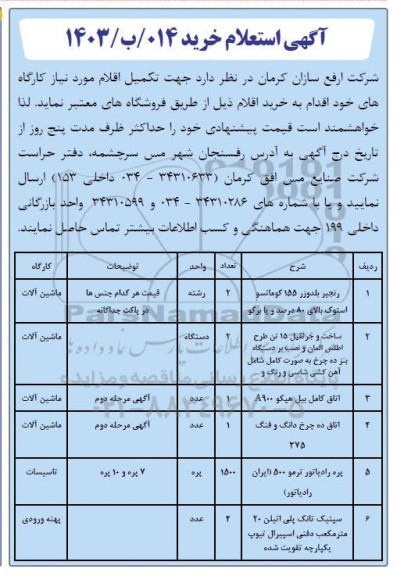 آگهی استعلام خرید ۰۱۴/ب/۱۴۰۳
شرکت ارفع سازان کرمان در نظر دارد جهت تکمیل اقلام مورد نیاز کارگاه
های خود اقدام به خرید اقلام ذیل از طریق فروشگاه های معتبر نماید. لذا
خواهشمند است قیمت پیشنهادی خود را حداکثر ظرف مدت پنج روز از
تاریخ درج آگهی به آدرس رفسنجان شهر مس سرچشمه، دفتر حراست
شرکت صنایع مس افق کرمان (۳۴۳۱۰۶۳۳ - ۰۳۴ داخلی ۱۵۳) ارسال
نمایید و یا با شماره های ۳۴۳۱۰۲۸۶ - ۰۳۴ و ۳۴۳۱۰۵۹۹ واحد بازرگانی
داخلی ۱۹۹ جهت هماهنگی و کسب اطلاعات بیشتر تماس حاصل نمایند.
ردیف شرح تعداد واحد توضیحات کارگاه
۱ زنجیر بلدوزر ۱۵۵ کوماتسو ۲ رشته قیمت هر کدام جنس ها ماشین آلات
استوک بالای ۸۰ درصد و یا برکو در پاکت جداگانه
۲ ساخت و جرثقیل ۱۵ تن طرح ۲ دستگاه ماشین آلات
اطلس آلمان و نصب بر دستگاه
بنز ده چرخ به صورت کامل شامل
آهن کشی شاسی و رنگ و
۳ اتاق کامل بیل هپکو ۹۰۰ ۱ عدد آگهی مرحله دوم ماشین آلات
۴ اتاق ده چرخ دانگ و فنگ ۱ عدد آگهی مرحله دوم ماشین آلات
۳۷۵
۵ پره رادیاتور ترمو ۵۰۰ (ایران ۱۵۰۰ پره ۷ پره و ۱۰ پره تاسیسات
رادیاتور)
۶ سپتیک تانک پلی اتیلن ۲۰ ۴ عدد پهنه ورودی
مترمکعب دفنی اسپیرال تیوپ
یکپارچه تقویت شده
ParsNamadData
پایگاه اطلاع رسانی مناقصه و مزایده
۰۲۱-۸۸۳۴۹۶۷۰-۵